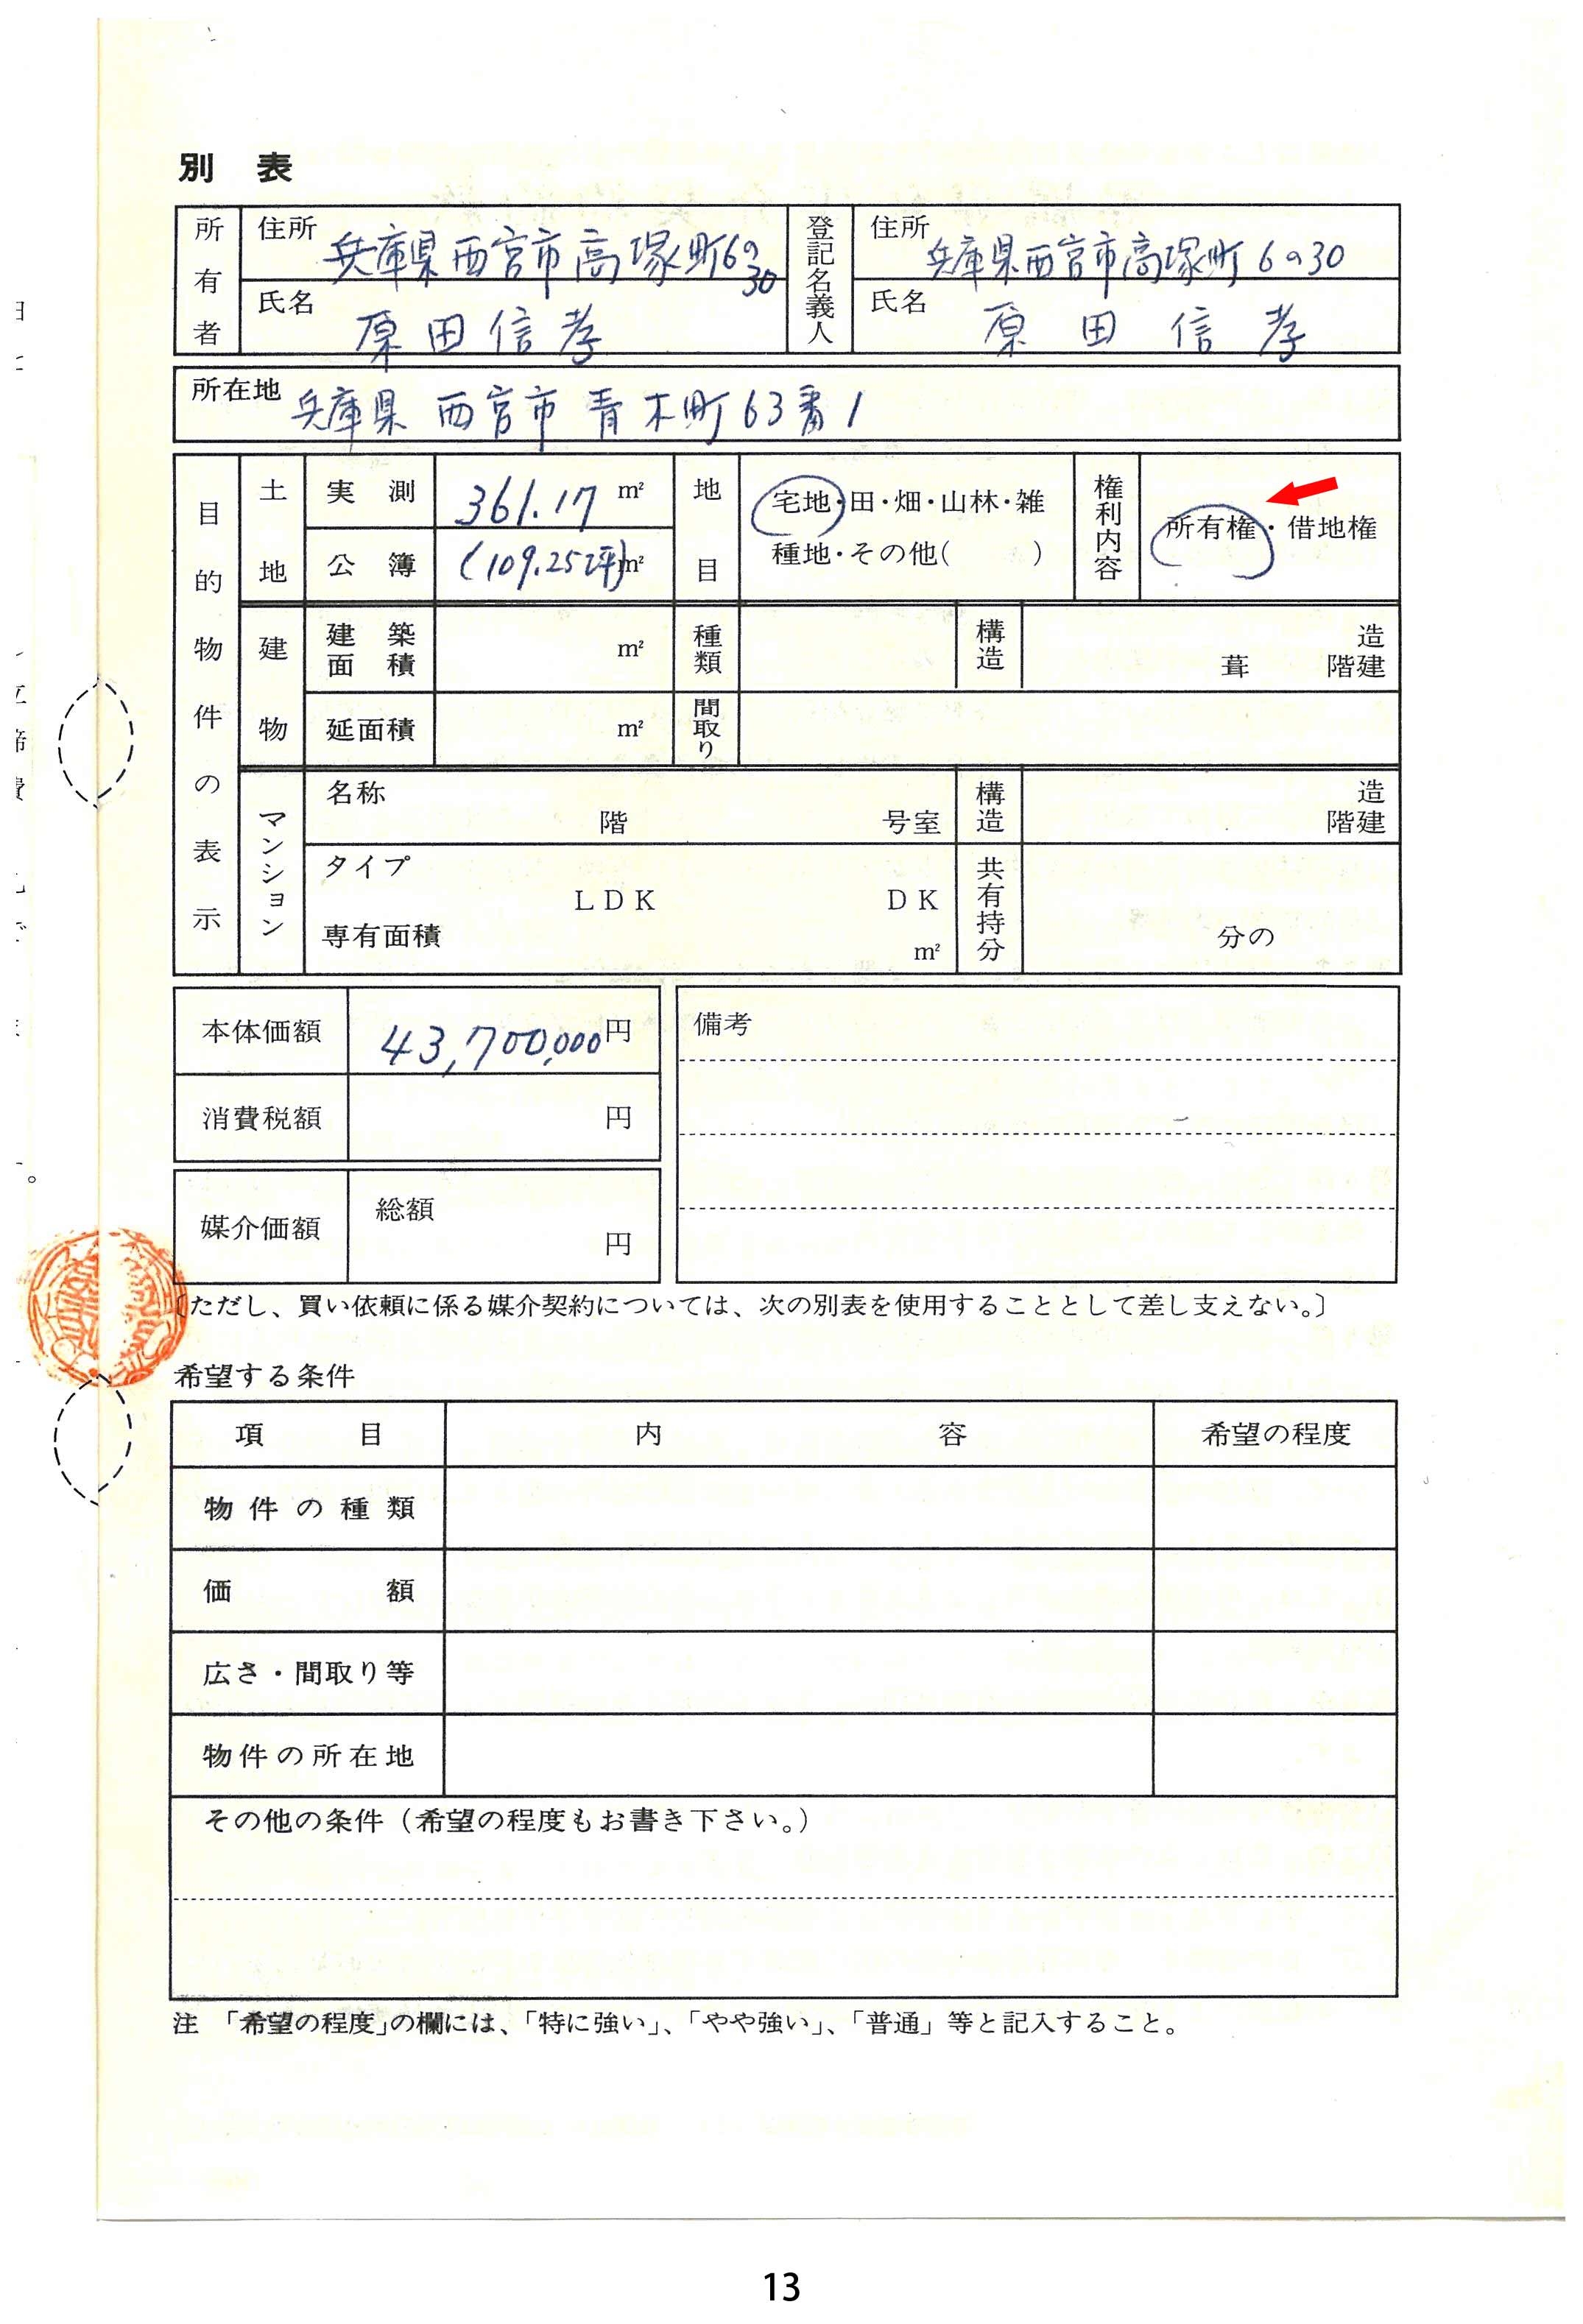 別 表
所有者
住所 兵庫県西宮市高塚町6の30
氏名 原田信孝
登記名義人
住所 兵庫県西宮市高塚町6の30
氏名 原田信孝
所在地 兵庫県西宮市青木町63番1
目的物件の表示
土地
実測 361.17 m²
公簿 (109.25坪) m²
地目
宅地・田・畑・山林・雑
種地・その他( )
権利内容
所有権・借地権
建物
建築面積 m²
種類
構造
造
葺 階建
延面積 m²
間取り
マンション
名称
階 号室
構造
造
階建
タイプ
LDK DK
専有面積 m²
共有持分
分の
本体価額 43,700,000円
消費税額 円
媒介価額 総額 円
備考
〔ただし、買い依頼に係る媒介契約については、次の別表を使用することとして差し支えない。〕
希望する条件
項目 内容 希望の程度
物件の種類
価額
広さ・間取り等
物件の所在地
その他の条件(希望の程度もお書き下さい。)
注 「希望の程度」の欄には、「特に強い」、「やや強い」、「普通」等と記入すること。
13